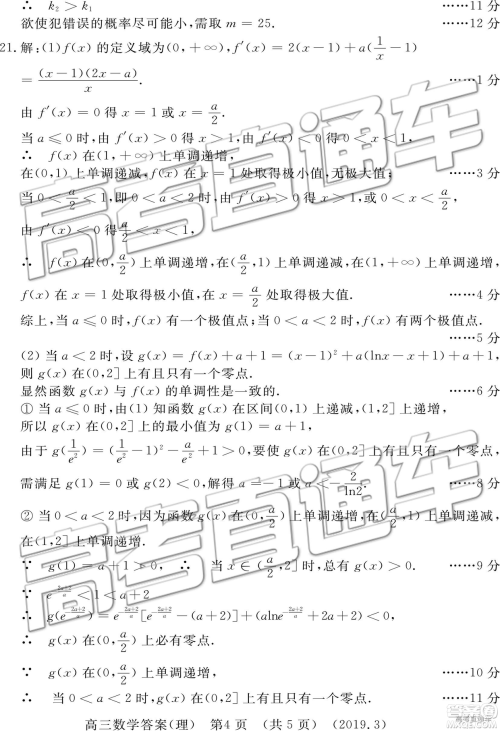 ∴ k₂ > k₁ ……11 分
欲使犯错误的概率尽可能小,需取 m = 25. ……12 分
21. 解:(1) f(x) 的定义域为(0, +∞), f′(x) = 2(x−1) + a(1/x − 1)
= (x−1)(2x−a)/x. ……1 分
由 f′(x) = 0 得 x = 1 或 x = a/2.
当 a ≤ 0 时,由 f′(x) > 0 得 x > 1,由 f′(x) < 0 得 0 < x < 1,
∴ f(x) 在(1, +∞) 上单调递增,
在(0,1) 上单调递减, f(x) 在 x = 1 处取得极小值,无极大值; ……3 分
当 0 < a/2 < 1,即 0 < a < 2 时,由 f′(x) > 0 得 x > 1,或 0 < x < a/2,
由 f′(x) < 0 得 a/2 < x < 1,
∴ f(x) 在(0, a/2) 上单调递增,在(a/2, 1) 上单调递减,在(1, +∞) 上单调递增,
f(x) 在 x = 1 处取得极小值,在 x = a/2 处取得极大值. ……4 分
综上,当 a ≤ 0 时, f(x) 有一个极值点;当 0 < a < 2 时, f(x) 有两个极值点.
……5 分
(2) 当 a < 2 时,设 g(x) = f(x) + a + 1 = (x−1)² + a(lnx − x + 1) + a + 1,
则 g(x) 在(0,2] 上有且只有一个零点.
显然函数 g(x) 与 f(x) 的单调性是一致的. ……6 分
① 当 a ≤ 0 时,由(1) 知函数 g(x) 在区间(0,1) 上递减,(1,2] 上递增,
所以 g(x) 在(0,2] 上的最小值为 g(1) = a + 1,
由于 g(1/e²) = (1/e² − 1)² − a/e² + 1 > 0,要使 g(x) 在(0,2] 上有且只有一个零点,
需满足 g(1) = 0 或 g(2) < 0,解得 a = −1 或 a < −2/ln2. ……8 分
② 当 0 < a < 2 时,因为函数 g(x) 在(0, a/2) 上单调递增,在(a/2, 1) 上单调递减,
在(1,2] 上单调递增.
∵ g(1) = a + 1 > 0, ∴ 当 x ∈ (a/2, 2] 时,总有 g(x) > 0. ……9 分
∵ e^(−(2a+2)/a) < 1 < a + 2
∴ g(e^(−(2a+2)/a)) = e^(−(2a+2)/a)[e^(−(2a+2)/a) − (a+2)] + (alne^(−(2a+2)/a) + 2a + 2) < 0,
∴ g(x) 在(0, a/2) 上必有零点.
∵ g(x) 在(0, a/2) 上单调递增, ……10 分
∴ 当 0 < a < 2 时, g(x) 在(0,2] 上有且只有一个零点. ……11 分
高三数学答案(理) 第4页 (共5页) (2019.3)
高考直通车